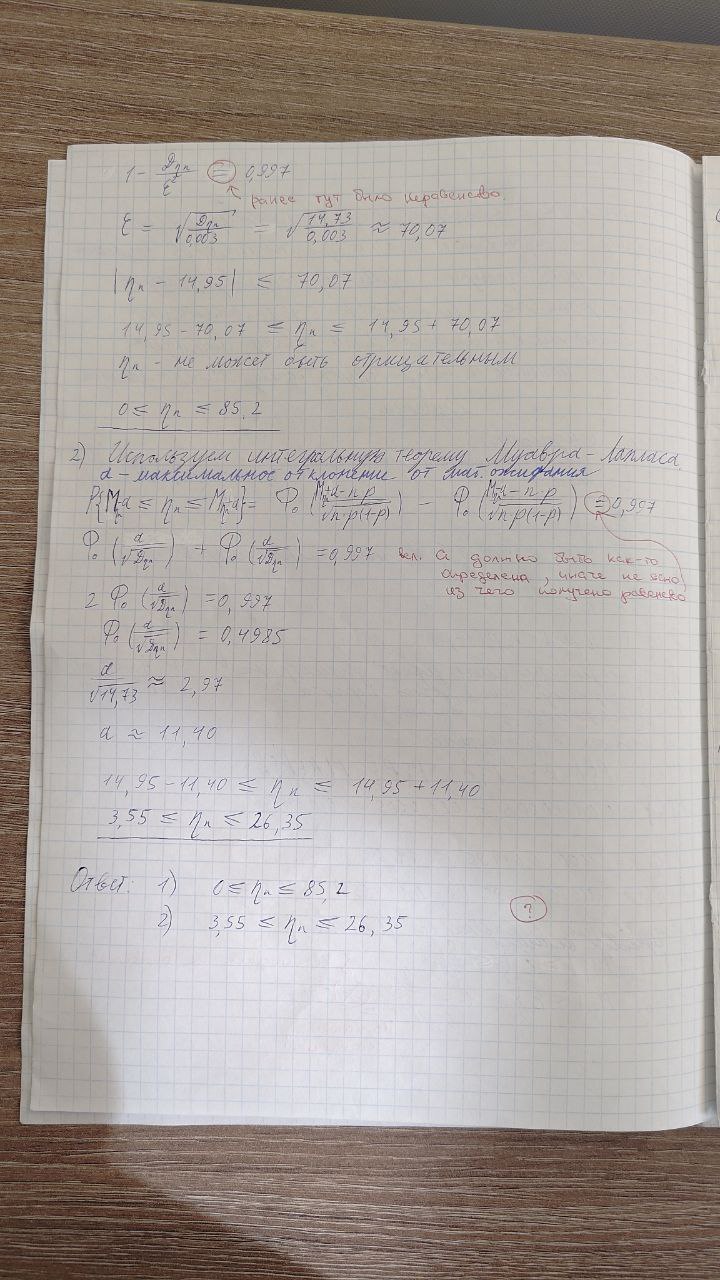 1 - Dηₙ/ε² = 0,997
ранее тут было неравенство.
ε = √(Dηₙ/0,003) = √(14,73/0,003) ≈ 70,07
|ηₙ - 14,95| ≤ 70,07
14,95 - 70,07 ≤ ηₙ ≤ 14,95 + 70,07
ηₙ - не может быть отрицательным
0 ≤ ηₙ ≤ 85,2
2) Используем интегральную теорему Муавра-Лапласа
d - максимальное отклонение от мат. ожидания
P{Mηₙ-d ≤ ηₙ ≤ Mηₙ+d} = Φ₀((Mηₙ+d-np)/√(np(1-p))) - Φ₀((Mηₙ-d-np)/√(np(1-p))) = 0,997
Φ₀(d/√Dηₙ) + Φ₀(d/√Dηₙ) = 0,997 вел. d должно быть как-то
определена, иначе не ясно
из чего получено равенство
2Φ₀(d/√Dηₙ) = 0,997
Φ₀(d/√Dηₙ) = 0,4985
d/√14,73 ≈ 2,97
d ≈ 11,40
14,95 - 11,40 ≤ ηₙ ≤ 14,95 + 11,40
3,55 ≤ ηₙ ≤ 26,35
Ответ: 1) 0 ≤ ηₙ ≤ 85,2
?
2) 3,55 ≤ ηₙ ≤ 26,35